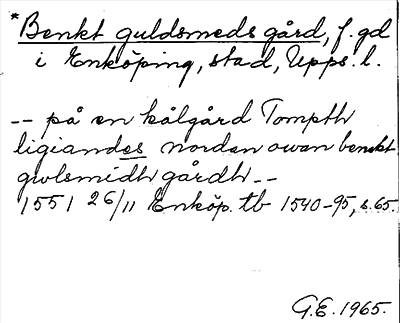 *Benkt guldsmeds gård, f. gd
i Enköping, stad, Upps. l.
-- på en kålgård Tompth
ligiandes nordan owan benkt
gwlsmidh gårdh --
1551 26/11 Enköp. tb 1540-95, s. 65.
G.E. 1965.